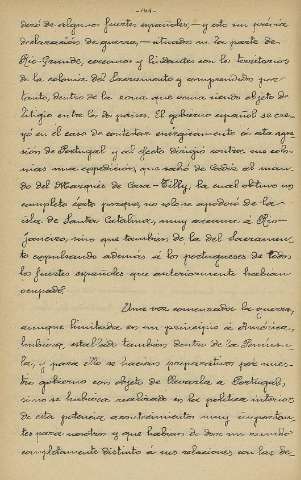 deró de algunos fuertes españoles, — y esto sin previa
declaración de guerra, — situados en la parte de
Rio-Grande, cercanos y lindantes con los territorios
de la colonia del Sacramento y comprendidos por
tanto, dentro de la zona que venia siendo objeto de
litigio entre los dos paises. El gobierno español se cre-
yó en el caso de contestar enérgicamente á esta agre-
sión de Portugal y al efecto dirigió contra sus colo-
nias una expedición, que salió de Cádiz al man-
do del Marqués de Casa-Tilly, la cual obtuvo un
completo éxito porque, no solo se apoderó de la
isla de Santa Catalina, muy cercana á Rio-
Janeiro, sino que tambien de la del Sacramen-
to expulsando además á los portugueses de todos
los fuertes españoles que anteriormente habian
ocupado.
Una vez comenzada la guerra,
aunque limitada en un principio á América,
hubiera estallado tambien dentro de la Penínsu-
la, y para ello se hacian preparativos por nues-
tro gobierno con objeto de llevarla á Portugal,
si no se hubieran realizado en la politica interior
de esta potencia acontecimientos muy importan-
tes para nosotros y que habian de dar un sentido
completamente distinto á sus relaciones con los de-